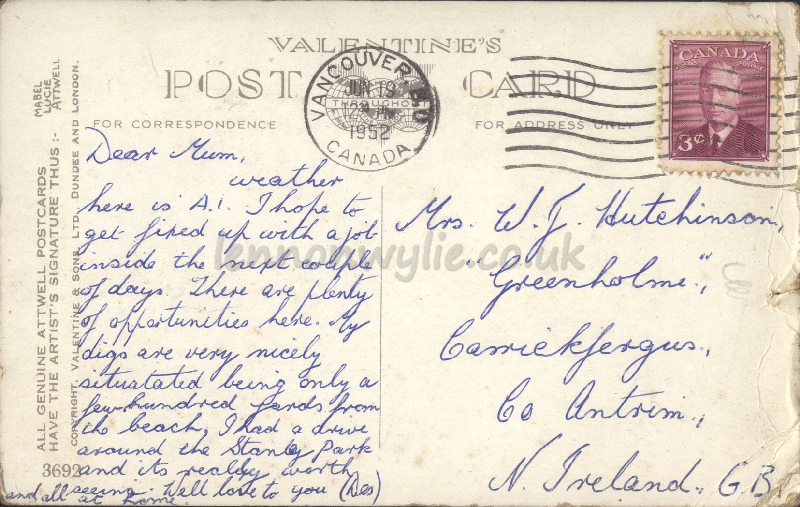 VALENTINE'S
POST CARD
FOR CORRESPONDENCE
FOR ADDRESS ONLY
VANCOUVER
JUN 19
PM
1952
CANADA
CANADA
3¢
MABEL
LUCIE
ATTWELL
ALL GENUINE ATTWELL POSTCARDS
HAVE THE ARTIST'S SIGNATURE THUS :-
COPYRIGHT, VALENTINE & SONS, LTD., DUNDEE AND LONDON.
3692
Dear Mum,
weather
here is A.1. I hope to
get fixed up with a job
inside the next couple
of days. There are plenty
of opportunities here. My
digs are very nicely
situatated being only a
few hundred yards from
the beach, I had a drive
around the Stanley Park
and its really worth
seeing. Well love to you (Des)
and all at home.
Mrs. W. J. Hutchinson,
"Greenholme",
Carrickfergus,
Co Antrim,
N. Ireland. G.B.
lennonwylie.co.uk